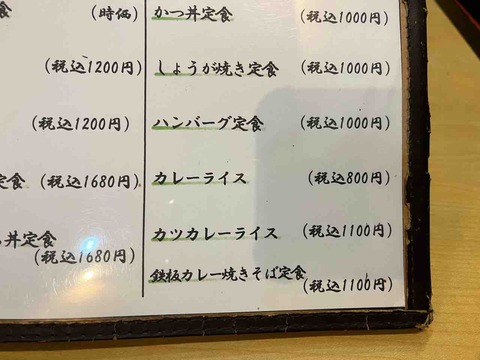 食 (時価)
(税込1200円)
(税込1200円)
定食 (税込1680円)
丼定食
(税込1680円)
かつ丼定食 (税込1000円)
しょうが焼き定食 (税込1000円)
ハンバーグ定食 (税込1000円)
カレーライス (税込800円)
カツカレーライス (税込1100円)
鉄板カレー焼きそば定食
(税込1100円)